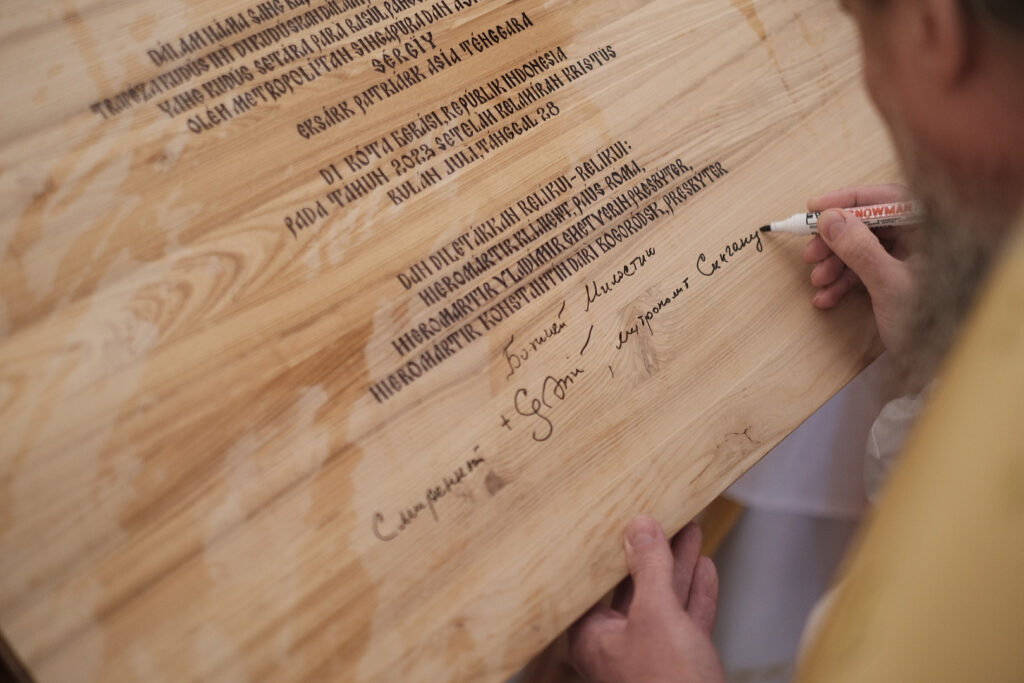 DALAM NAMA SANG
TRAPEZA KUDUS INI DIKUDUSKAN DALAM
YANG KUDUS SETARA PARA RASUL,
OLEH METROPOLITAN SINGAPURA DAN
SERGIY
EKSARK PATRIARK ASIA TENGGARA
DI KOTA BEKASI, REPUBLIK INDONESIA
PADA TAHUN 2023 SETELAH KELAHIRAN KRISTUS
BULAN JULI, TANGGAL 28
DAN DILETAKKAN RELIKUI-RELIKUI:
HIEROMARTIR KLEMENT, PAUS ROMA,
HIEROMARTIR VLADIMIR CHETVERIN PRESBYTER,
HIEROMARTIR KONSTANTIN DARI BOGORODSK, PRESBYTER
Божией Милостию
Смиренный + Сергий, митрополит Сингапу
SNOWMAN